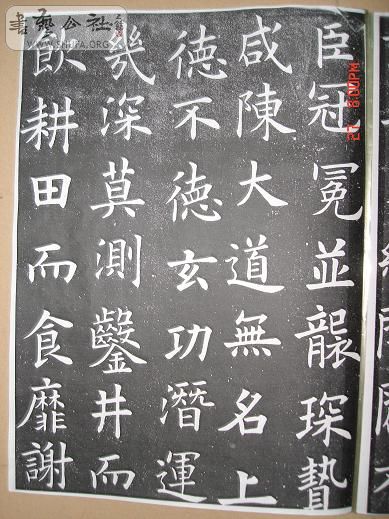 書藝公社
SHUFA.ORG
臣冠冕並襲琛贄
咸陳大道無名上
德不德玄功潛運
幾深莫測鑿井而
飲耕田而食靡謝